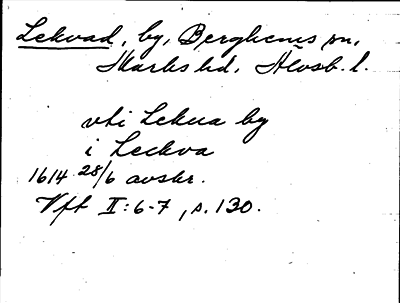 Lekvad, by, Berghems sn,
Marks hd, Älvsb. l.
vti Lekua by
i Leckva
1614 28/6 avskr.
Vft II:6-7, s. 130.